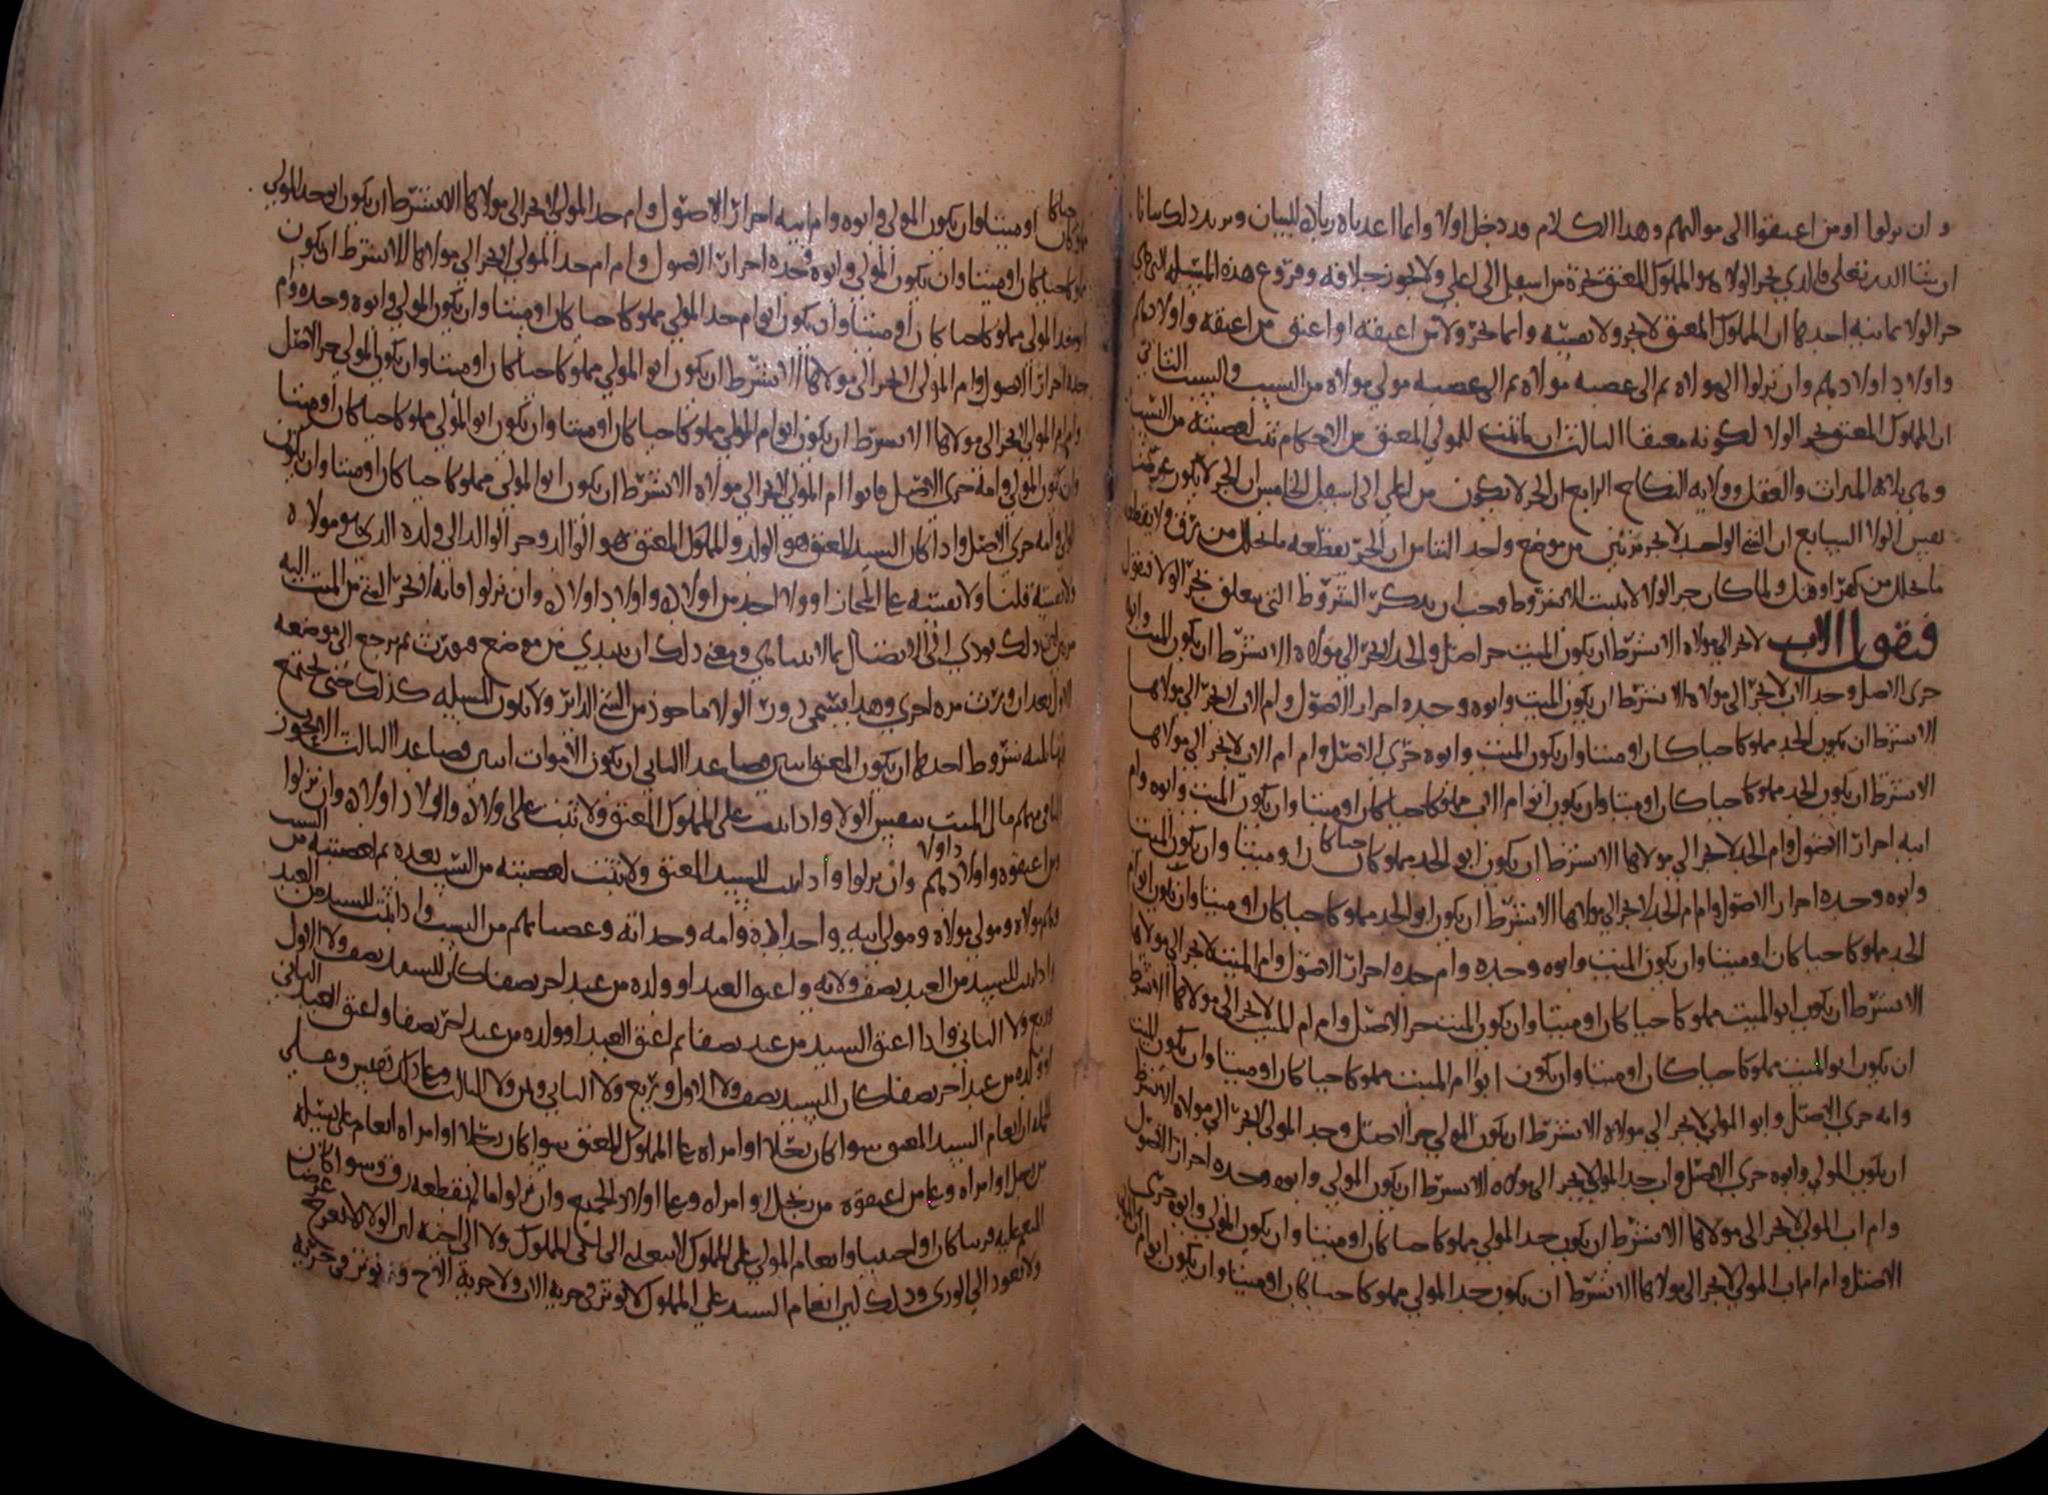 وان نزلوا او من اعتقوا الى مواليهم وهذا الكلام قد دخل اولا وانما اعدناه زيادة للبيان ونزيد ذلك بيانا
ان شا الله تعلى فالذي يجر الولا هو المملوك المعتق يجره من اسفل الى اعلى ولا يجوز خلافه وفروع هذه المسله التي هي
جر الولا ثمانيه احدها ان المملوك المعتق لا يجر ولا نفسه وانما يجر ولا من اعتقه او اعتق من اعتقه واولادهم
واولاد اولادهم وان نزلوا الى مولاه ثم الى عصبه مولاه ثم الى عصبه مولى مولاه من السبب والنسب الثاني
ان المملوك المعتق يجر الولا لكونه معتقا الثالث ان ما ثبت للمولى المعتق من الاحكام ثبت لعصبته من النسب
وهي ثلاثه الميراث والعقل وولايه النكاح الرابع ان الجر لا يكون من اعلى الى اسفل الخامس ان الجر لا يكون
نفس الولا السابع ان الشي الواحد لا يجر مرتين من موضع واحد الثامن ان الجر يقطعه ما تخلل من رق ولا يقطعه
ما تخلل من كفر او قتل ولما كان جر الولا لا يثبت الا بشروط وجب ان نذكر الشروط التي يتعلق بجر الولا فنقول
فنقول الاب لا يجر الى مولاه الا بشرط ان يكون الميت حر اصل والجد لا يجر الى مولاه الا بشرط ان يكون الميت وابوه
حري الاصل وجد الاب لا يجر الى مولاه الا بشرط ان يكون الميت وابوه وجده احرار الاصول وام الاب لا تجر الى مولاها
الا بشرط ان يكون الجد مملوكا حيا كان او ميتا وان يكون الميت وابوه حري الاصل وام ام الاب لا تجر الى مولاها
الا بشرط ان يكون الجد مملوكا حيا كان او ميتا وان يكون ابو ام الاب مملوكا حيا كان او ميتا وان يكون الميت وابوه وام
ابيه احرار الاصول وام الجد لا تجر الى مولاها الا بشرط ان يكون ابو الجد مملوكا حيا كان او ميتا وان يكون الميت
وابوه وجده احرار الاصول وام ام الجد لا تجر الى مولاها الا بشرط ان يكون ابو الجد مملوكا حيا كان او ميتا وان يكون ابو ام
الجد مملوكا حيا كان او ميتا وان يكون الميت وابوه وجده وام جده احرار الاصول وام الميت لا تجر الى مولاها
الا بشرط ان يكون ابو الميت مملوكا حيا كان او ميتا وان يكون الميت حر الاصل وام ام الميت لا تجر الى مولاها الا بشرط
ان يكون ابو الميت مملوكا حيا كان او ميتا وان يكون ابو ام الميت مملوكا حيا كان او ميتا وان يكون الميت
وامه حري الاصل وابو المولى لا يجر الى مولاه الا بشرط ان يكون المولى حر الاصل وجد المولى لا يجر الى مولاه الا بشرط
ان يكون المولى وابوه حري الاصل واب جد المولى لا يجر الى مولاه الا بشرط ان يكون المولى وابوه وجده احرار الاصول
وام اب المولى لا تجر الى مولاها الا بشرط ان يكون جد المولى مملوكا حيا كان او ميتا وان يكون المولى وابوه حري
الاصل وام ام اب المولى لا تجر الى مولاها الا بشرط ان يكون جد المولى مملوكا حيا كان او ميتا وان يكون ابو ام
مملوكا حيا كان او ميتا وان يكون المولى وابوه وام ابيه احرار الاصول وام جد المولى لا تجر الى مولاها الا بشرط ان يكون ابو جد المولى
مملوكا حيا كان او ميتا وان يكون المولى وابوه وجده احرار الاصول وام ام جد المولى لا تجر الى مولاها الا بشرط ان يكون
ابو جد المولى مملوكا حيا كان او ميتا وان يكون ابو ام جد المولى مملوكا حيا كان او ميتا وان يكون المولى وابوه وجده وام
جده احرار الاصول وام المولى لا تجر الى مولاها الا بشرط ان يكون ابو المولى مملوكا حيا كان او ميتا وان يكون المولى حر الاصل
وام ام المولى لا تجر الى مولاها الا بشرط ان يكون ابو ام المولى مملوكا حيا كان او ميتا وان يكون ابو المولى مملوكا حيا كان او ميتا
وان يكون المولى وامه حري الاصل وابو ام المولى لا يجر الى مولاه الا بشرط ان يكون ابو المولى مملوكا حيا كان او ميتا وان يكون
المولى وامه حري الاصل واذا كان السيد المعتق هو الولد والمملوك المعتق هو الوالد وجر الوالد الى ولده الذي هو مولاه
ولا نفسه قلنا ولا نفسه على المجاز او ولا احد من اولاده واولاد اولاده وان نزلوا فانه لا يجر الشي من الميت اليه
ذلك يودي الى الاتصال بما لا يتناهى ومعنى ذلك ان يبتدي من موضع فيورث ثم يرجع الى موضعه
الاول بعد ان ورث مره اخرى وهذا يسمى دور الولا ماخوذ من الشي الداير ولا تكون المسله كذلك حتى تجتمع
ثلثه شروط احدها ان يكون المعتق اثنين فصاعدا الثاني ان يكون الاموات اثنين فصاعدا الثالث الا يجوز
الباقي منهم مال الميت بنفس الولا واذا ثبت على المملوك المعتق ولا ثبت على اولاده واولاد اولاده وان نزلوا
ومن اعتقوه واولادهم وان نزلوا واذا ثبت للسيد المعتق ولا ثبت لعصبته من النسب بعده ثم لعصبته من السبب
وهم مولاه ومولى مولاه ومولى ابيه واجداده وامه وجداته وعصباتهم من النسب واذا ثبت للسيد من العبد
واذا ثبت للسيد من العبد نصف ولايه واعتق العبد او ولده من عبد اخر نصفا كان للسيد نصف ولا الاول
وربع ولا الثاني واذا اعتق السيد من عبد نصفا ثم اعتق العبد او ولده من عبد اخر نصفا واعتق العبد الثاني
او ولده من عبد اخر نصفا كان للسيد نصف ولا الاول وربع ولا الثاني وثمن ولا الثالث وعلى ذلك فقس وعلى
الجمله ان انعام السيد المعتق سوا كان رجلا او امراه على المملوك المعتق سوا كان رجلا او امراه انعام على نسله
من رجل او امراه وعلى من اعتقوه من رجل او امراه وعلى اولاد الجميع وان نزلوا ما لم يقطعه رق وسوا كان
المنعم عليه قريبا كان او اجنبيا وانعام المولى على المملوك لا يتعدى الى اعلى المملوك ولا الى اخيه لان الولا لا يعرج
ولا يعود الى الورى وذلك لان انعام السيد على المملوك لا يوثر في حرية الاب ولا حرية الاخ ويوثر في حرية